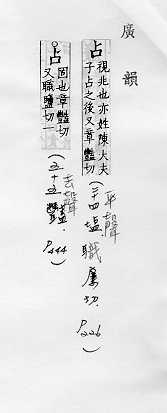 廣韻
占 視兆也亦姓陳大夫
子占之後又章豔切
平聲
(二十四鹽,職廉切,P226)
占 固也章豔切
又職鹽切一
去聲
(五十五豔,P444)